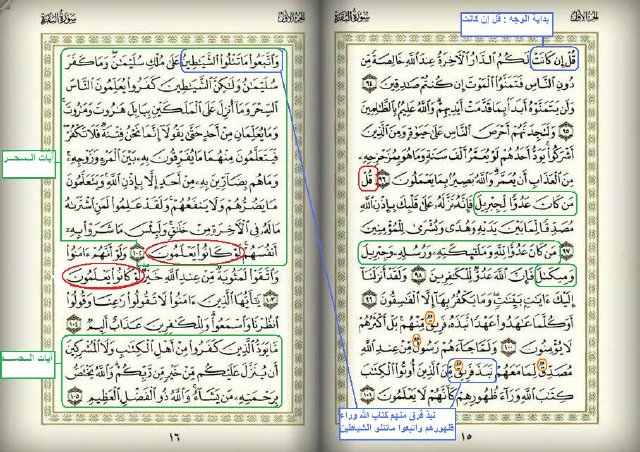 الجزء الأول
سورة البقرة
بداية الوجه : قل إن كانت
قُلْ إِن كَانَتْ لَكُمُ الدَّارُ الْآخِرَةُ عِندَ اللَّهِ خَالِصَةً مِّن
دُونِ النَّاسِ فَتَمَنَّوُا الْمَوْتَ إِن كُنتُمْ صَادِقِينَ ٩٤
وَلَن يَتَمَنَّوْهُ أَبَدًا بِمَا قَدَّمَتْ أَيْدِيهِمْ وَاللَّهُ عَلِيمٌ بِالظَّالِمِينَ
٩٥ وَلَتَجِدَنَّهُمْ أَحْرَصَ النَّاسِ عَلَىٰ حَيَاةٍ وَمِنَ الَّذِينَ
أَشْرَكُوا يَوَدُّ أَحَدُهُمْ لَوْ يُعَمَّرُ أَلْفَ سَنَةٍ وَمَا هُوَ بِمُزَحْزِحِهِ
مِنَ الْعَذَابِ أَن يُعَمَّرَ وَاللَّهُ بَصِيرٌ بِمَا يَعْمَلُونَ ٩٦ قُلْ
مَن كَانَ عَدُوًّا لِّجِبْرِيلَ فَإِنَّهُ نَزَّلَهُ عَلَىٰ قَلْبِكَ بِإِذْنِ اللَّهِ
مُصَدِّقًا لِّمَا بَيْنَ يَدَيْهِ وَهُدًى وَبُشْرَىٰ لِلْمُؤْمِنِينَ
٩٧ مَن كَانَ عَدُوًّا لِّلَّهِ وَمَلَائِكَتِهِ وَرُسُلِهِ وَجِبْرِيلَ
وَمِيكَالَ فَإِنَّ اللَّهَ عَدُوٌّ لِّلْكَافِرِينَ ٩٨ وَلَقَدْ أَنزَلْنَا
إِلَيْكَ آيَاتٍ بَيِّنَاتٍ وَمَا يَكْفُرُ بِهَا إِلَّا الْفَاسِقُونَ ٩٩
أَوَكُلَّمَا عَاهَدُوا عَهْدًا نَّبَذَهُ فَرِيقٌ مِّنْهُم بَلْ أَكْثَرُهُمْ
لَا يُؤْمِنُونَ ١٠٠ وَلَمَّا جَاءَهُمْ رَسُولٌ مِّنْ عِندِ اللَّهِ
مُصَدِّقٌ لِّمَا مَعَهُمْ نَبَذَ فَرِيقٌ مِّنَ الَّذِينَ أُوتُوا الْكِتَابَ
كِتَابَ اللَّهِ وَرَاءَ ظُهُورِهِمْ كَأَنَّهُمْ لَا يَعْلَمُونَ ١٠١
نبذ فرق منهم كتاب الله وراء
ظهورهم واتبعوا ماتتلو الشياطين
١٥
سورة البقرة
الجزء الأول
وَاتَّبَعُوا مَا تَتْلُو الشَّيَاطِينُ عَلَىٰ مُلْكِ سُلَيْمَانَ وَمَا كَفَرَ
سُلَيْمَانُ وَلَٰكِنَّ الشَّيَاطِينَ كَفَرُوا يُعَلِّمُونَ النَّاسَ
السِّحْرَ وَمَا أُنزِلَ عَلَى الْمَلَكَيْنِ بِبَابِلَ هَارُوتَ وَمَارُوتَ
وَمَا يُعَلِّمَانِ مِنْ أَحَدٍ حَتَّىٰ يَقُولَا إِنَّمَا نَحْنُ فِتْنَةٌ فَلَا تَكْفُرْ
فَيَتَعَلَّمُونَ مِنْهُمَا مَا يُفَرِّقُونَ بِهِ بَيْنَ الْمَرْءِ وَزَوْجِهِ
وَمَا هُم بِضَارِّينَ بِهِ مِنْ أَحَدٍ إِلَّا بِإِذْنِ اللَّهِ وَيَتَعَلَّمُونَ
مَا يَضُرُّهُمْ وَلَا يَنفَعُهُمْ وَلَقَدْ عَلِمُوا لَمَنِ اشْتَرَاهُ
مَا لَهُ فِي الْآخِرَةِ مِنْ خَلَاقٍ وَلَبِئْسَ مَا شَرَوْا بِهِ
أَنفُسَهُمْ لَوْ كَانُوا يَعْلَمُونَ ١٠٢ وَلَوْ أَنَّهُمْ آمَنُوا
وَاتَّقَوْا لَمَثُوبَةٌ مِّنْ عِندِ اللَّهِ خَيْرٌ لَّوْ كَانُوا يَعْلَمُونَ
١٠٣ يَا أَيُّهَا الَّذِينَ آمَنُوا لَا تَقُولُوا رَاعِنَا وَقُولُوا
انظُرْنَا وَاسْمَعُوا وَلِلْكَافِرِينَ عَذَابٌ أَلِيمٌ ١٠٤
مَّا يَوَدُّ الَّذِينَ كَفَرُوا مِنْ أَهْلِ الْكِتَابِ وَلَا الْمُشْرِكِينَ
أَن يُنَزَّلَ عَلَيْكُم مِّنْ خَيْرٍ مِّن رَّبِّكُمْ وَاللَّهُ يَخْتَصُّ
بِرَحْمَتِهِ مَن يَشَاءُ وَاللَّهُ ذُو الْفَضْلِ الْعَظِيمِ ١٠٥
آيات السحر
آيات الحسد
١٦